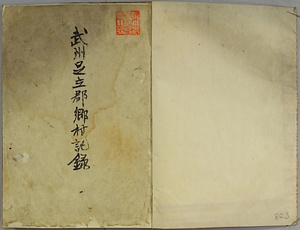 武州足立郡郷村記録
823